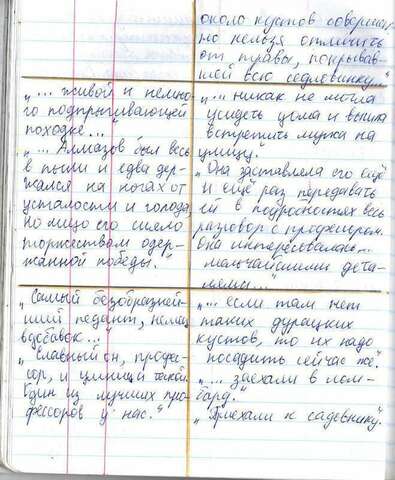 около кустов совершен-
но нельзя отличить
от травы, покрывав-
шей всю седловинку..."
„... живой и немно-
го подпрыгивающей
походке..."
„... Алмазов был весь
в пыли и едва дер-
жался на ногах от
усталости и голода,
но лицо его сияло
торжеством одер-
жанной победы."
„... никак не могла
усидеть дома и вышла
встретить мужа на
улицу."
„Она заставляла его ещё
и ещё раз передавать
ей в подробностях весь
разговор с профессором.
Она интересовалась
мельчайшими дета-
лями..."
„Самый безобразней-
ший педант, немец
вдобавок..."
„Славный он, профес-
сор, и умница такой.
Один из лучших про-
фессоров у нас."
„... если там нет
таких дурацких
кустов, то их надо
посадить сейчас же".
„... заехали в лом-
бард."
„Приехали к садовнику".